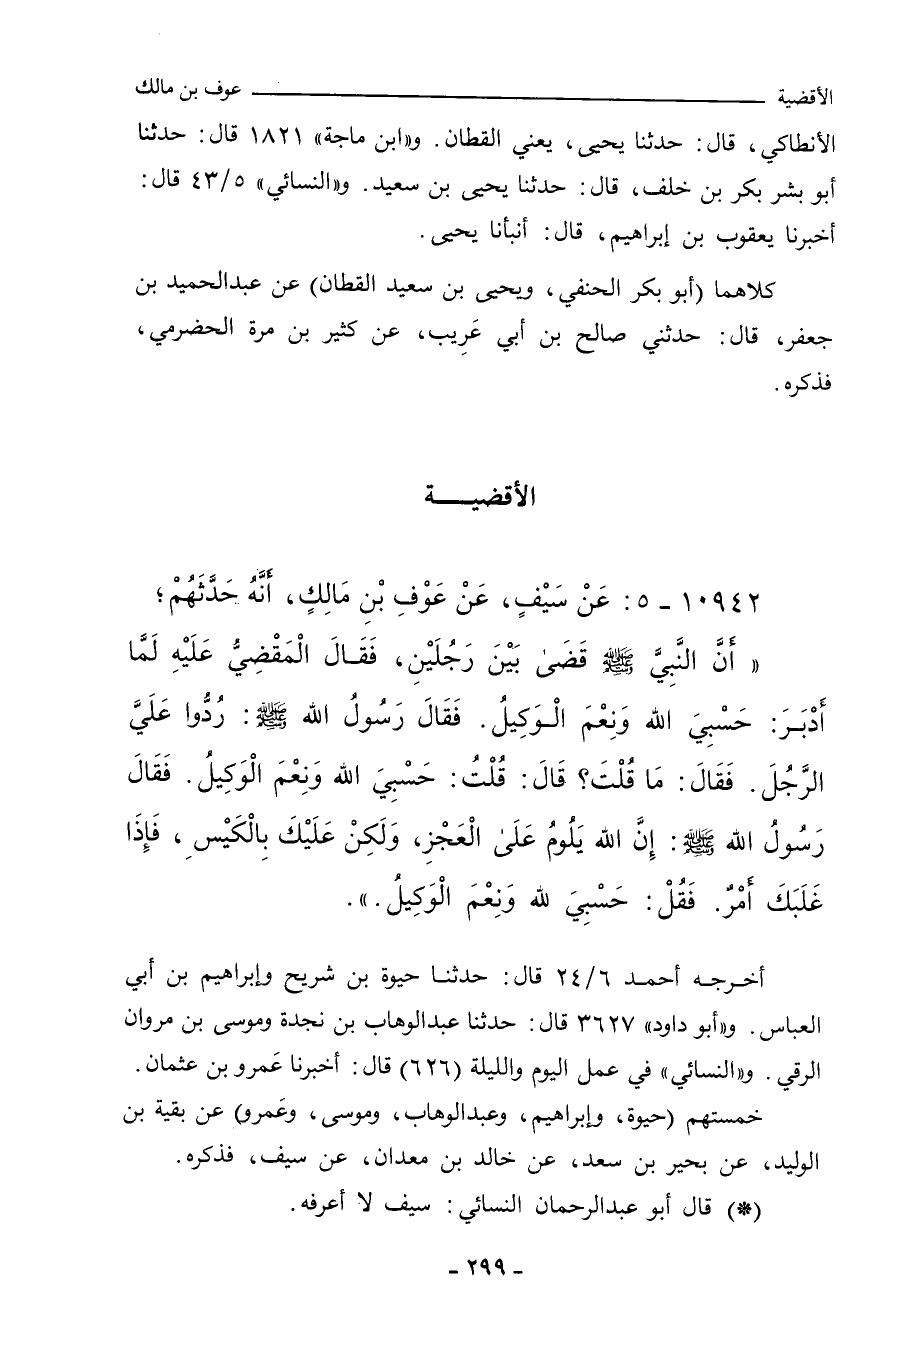 الأقضية ــــــــ عوف بن مالك
الأنطاكي، قال: حدثنا يحيى، يعني القطان. و«ابن ماجة» ١٨٢١ قال: حدثنا
أبو بشر بكر بن خلف، قال: حدثنا يحيى بن سعيد. و«النسائي» ٤٣/٥ قال:
أخبرنا يعقوب بن إبراهيم، قال: أنبأنا يحيى.
كلاهما (أبو بكر الحنفي، ويحيى بن سعيد القطان) عن عبدالحميد بن
جعفر، قال: حدثني صالح بن أبي عَرِيب، عن كثير بن مرة الحضرمي،
فذكره.
الأقضيـــة
١٠٩٤٢ - ٥: عَنْ سَيْفٍ، عَنْ عَوْفِ بْنِ مَالِكٍ، أَنَّهُ حَدَّثَهُمْ؛
« أَنَّ النَّبِيَّ ﷺ قَضَىٰ بَيْنَ رَجُلَيْنِ، فَقَـالَ الْمَقْضِيُّ عَلَيْهِ لَمَّا
أَدْبَـرَ: حَسْبِيَ الله وَنِعْمَ الْـوَكِيلُ. فَقَالَ رَسُولُ الله ﷺ: رُدُّوا عَلَيَّ
الرَّجُلَ. فَقَالَ: مَا قُلْتَ؟ قَالَ: قُلْتُ: حَسْبِيَ الله وَنِعْمَ الْوَكِيلُ. فَقَالَ
رَسُولُ الله ﷺ: إِنَّ الله يَلُومُ عَلَىٰ الْعَجْزِ، وَلَكِنْ عَلَيْكَ بِالْكَيْسِ، فَإِذَا
غَلَبَكَ أَمْرٌ. فَقُلْ: حَسْبِيَ لله وَنِعْمَ الْوَكِيلُ.».
أخـرجـه أحمـد ٢٤/٦ قال: حدثنـا حيوة بن شريح وإبراهيم بن أبي
العباس. و«أبو داود» ٣٦٢٧ قال: حدثنا عبدالوهاب بن نجدة وموسى بن مروان
الرقي. و«النسائي» في عمل اليوم والليلة (٦٢٦) قال: أخبرنا عَمرو بن عثمان.
خمستهم (حيوة، وإبراهيم، وعبدالوهاب، وموسى، وعَمرو) عن بقية بن
الوليد، عن بحير بن سعد، عن خالد بن معدان، عن سيف، فذكره.
(*) قال أبو عبدالرحمان النسائي: سيف لا أعرفه.
- ٢٩٩ -